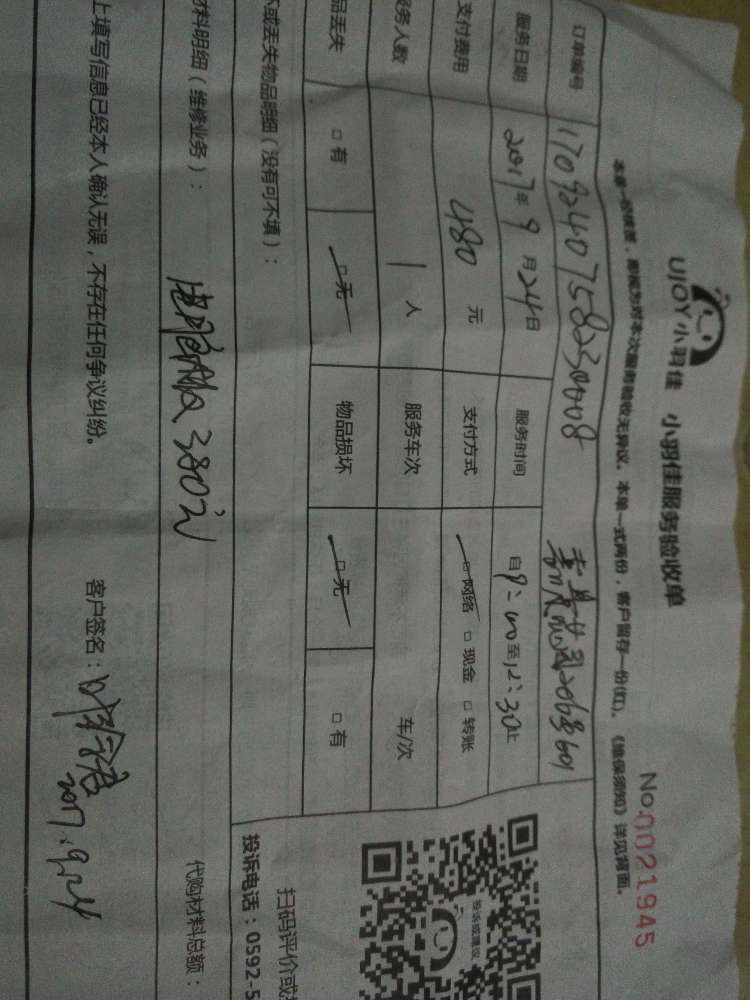 UJOY小羽佳 小羽佳服务验收单
No.0021945
本单一式两份,客户留存一份(红)。《维保须知》详见背面。
订单编号 170924075823
服务日期 2017年9月24日 服务时间 自9:00至12:30止
支付费用 480元 支付方式 网络 □现金 □转账
服务人数 1人 服务车次 车/次
品丢失 □有 □无 物品损坏 □无 □有
坏或丢失物品明细(没有可不填):
材料明细(维修业务): 380元
代购材料总额:
上填写信息已经本人确认无误,不存在任何争议纠纷。 客户签名:
2017.9.24
投诉或建议
扫码评价或
投诉电话:0592-5